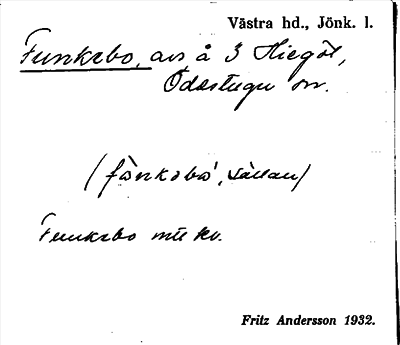 Västra hd., Jönk. l.
Funkabo, avs å 3 Hiegöl,
Ödestugu sn.
(fàŋkabó, sällan)
Funkabo mtl kv.
Fritz Andersson 1932.